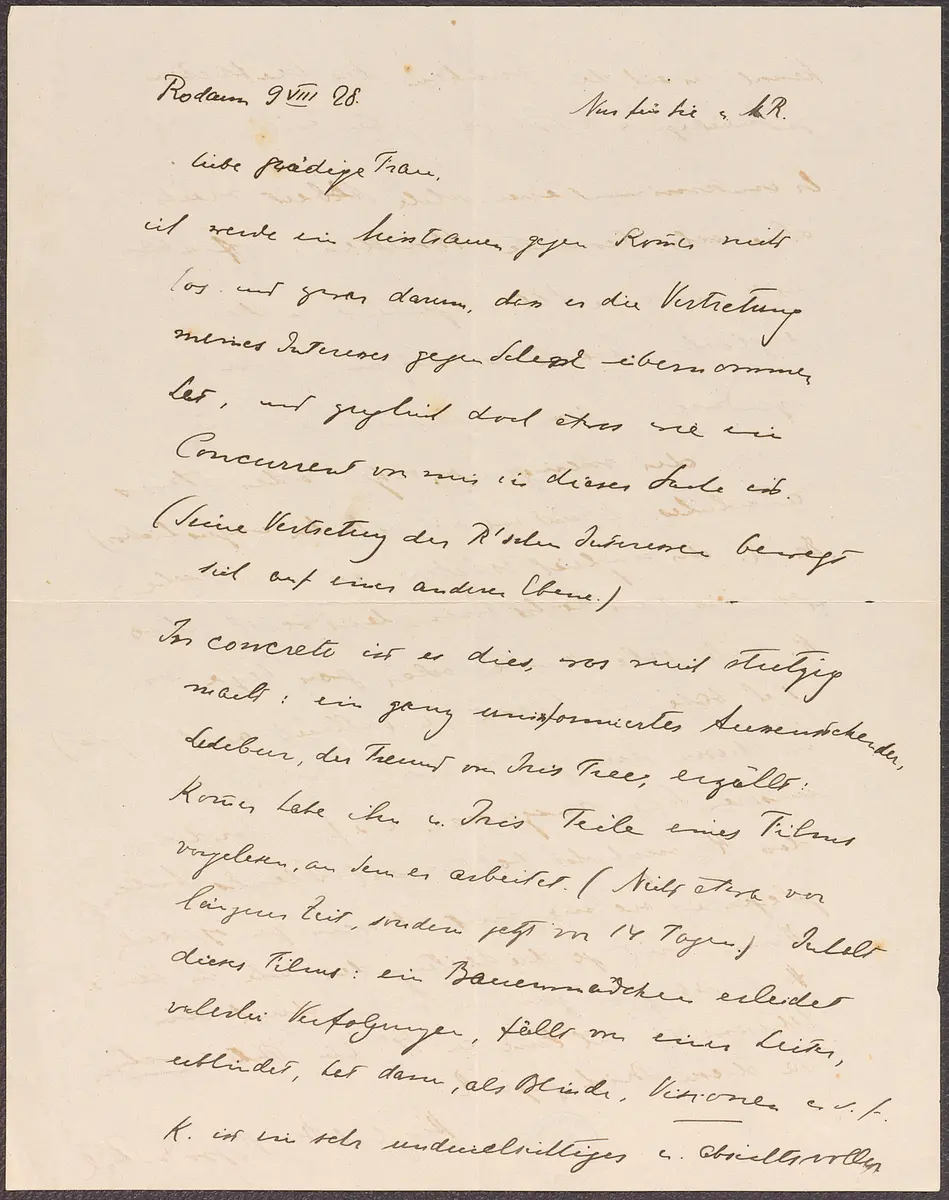 Rodaun 9 VIII 28.
Nur für Sie u. MR.
liebe gnädige Frau,
ich werde ein Misstrauen gegen Komer nicht
los und zwar darum, dass er die Vertretung
meines Interesses gegen übernommen
hat, und zugleich doch etwas wie ein
Concurrent von mir in dieser Sache ist.
(Seine Vertretung der R'schen Interessen bewegt
sich auf einer anderen Ebene.)
In concreto ist es dies, was mich stutzig
macht: ein ganz uninformierter Aussenstehender,
Ledebur, der Freund von Iris Tree, erzählt:
Komer habe ihm u. Iris Teile eines Films
vorgelesen, an dem er arbeitet. (Nicht etwa vor
längerer Zeit, sondern jetzt vor 14 Tagen.) Inhalt
dieses Films: ein Bauernmädchen erleidet
vielerlei Verfolgungen, fällt von einer Leiter,
erblindet, hat dann, als Blinde, Visionen u.s.f.
K. ist ein sehr undurchsichtiges u. absichtsvolles